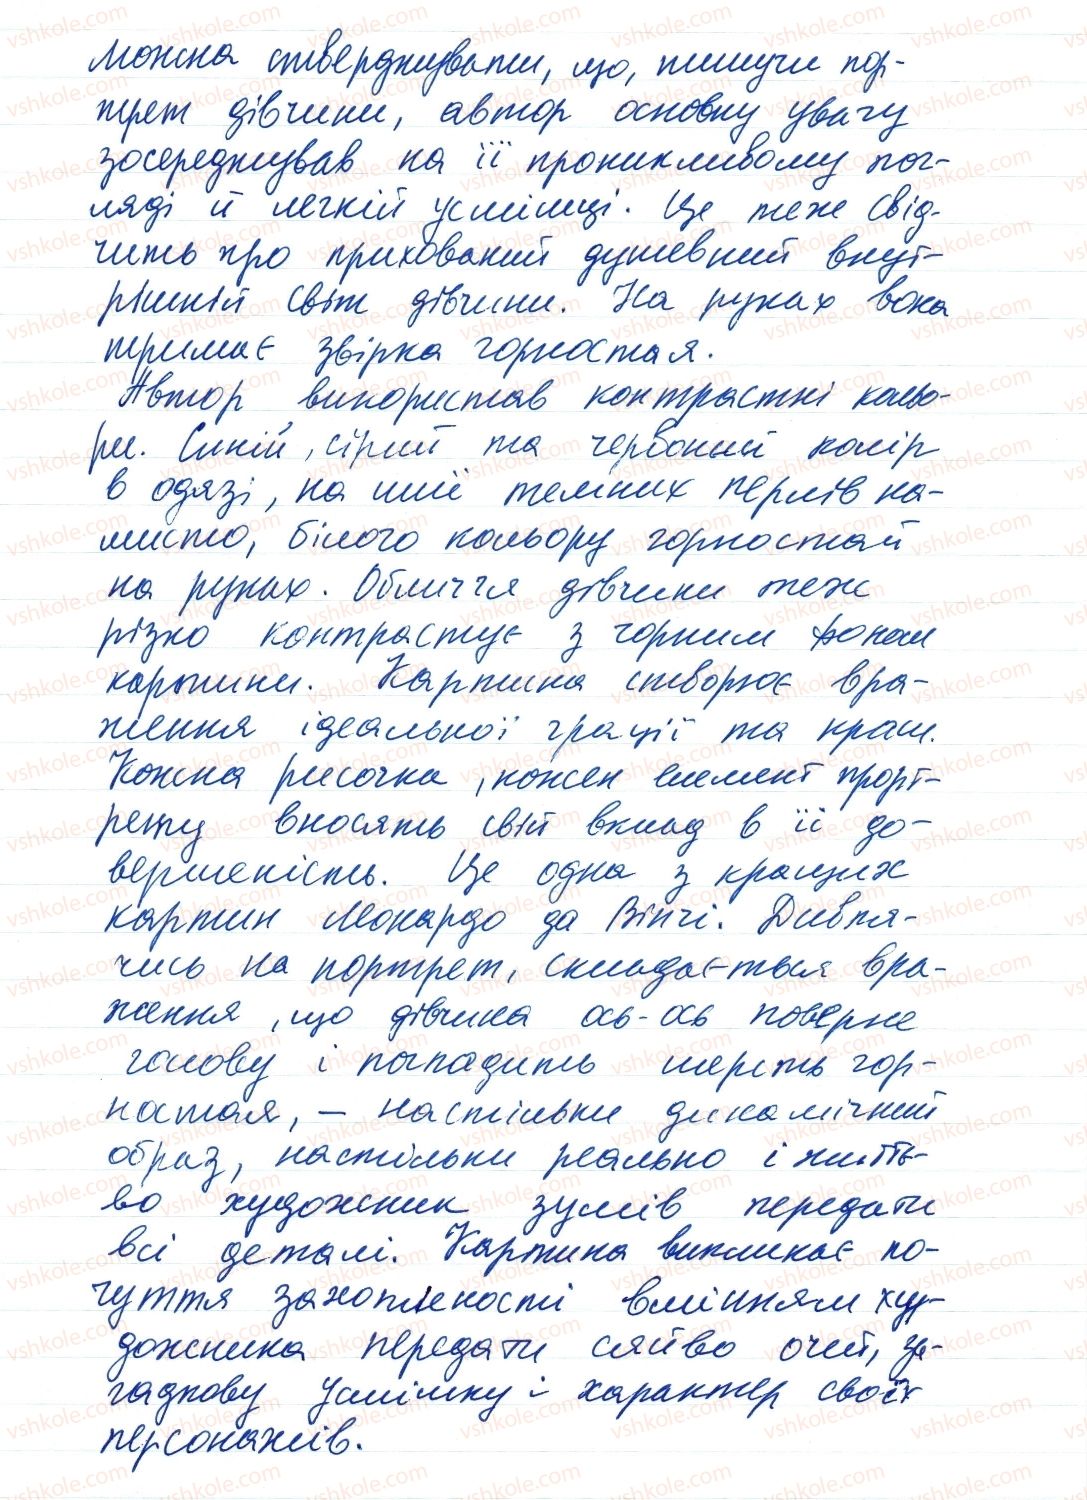 можна стверджувати, що, пишучи пор-
трет дівчини, автор основну увагу
зосереджував на її проникливому пог-
ляді й легкій усмішці. Це теж свід-
чить про прихований душевний внут-
рішній світ дівчини. На руках вона
тримає звірка горностая.
Автор використав контрастні кольо-
ри. Синій, сірий та червоний колір
в одязі, на шиї темних перлів на-
мисто, білого кольору горностай
на руках. Обличчя дівчини теж
різко контрастує з чорним фоном
картини. Картина створює вра-
ження ідеальної грації та краси.
Кожна рисочка, кожен елемент прорт-
рету вносять свій вклад в її до-
вершеність. Це одна з кращих
картин Леонардо да Вінчі. Дивля-
чись на портрет, складається вра-
ження, що дівчина ось-ось поверне
голову і погладить шерсть гор-
ностая, – настільки динамічний
образ, настільки реально і життє-
во художник зумів передати
всі деталі. Картина викликає по-
чуття захопленості вмінням ху-
дожника передати сяйво очей, за-
гадкову усмішку і характер своїх
персонажів.